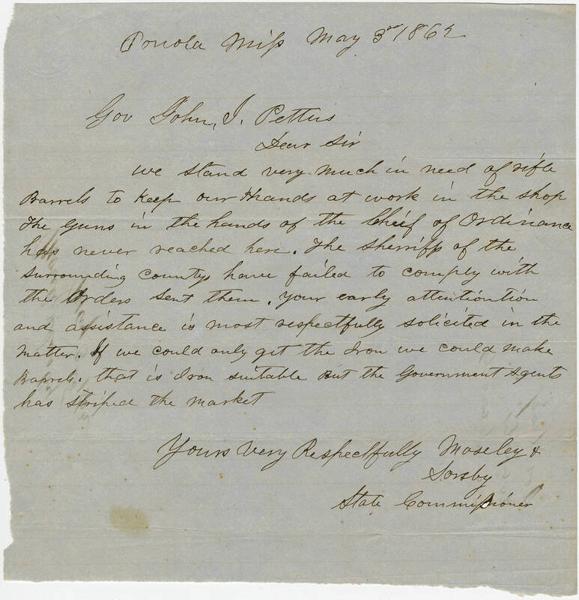 Ponola Miss May 3rd 1862
Gov John, J. Pettus
Dear Sir
We stand very much in need of rifle
Barrels to keep our Hands at work in the shop
The Guns in the hands of the Chief of Ordinance
has never reached here. The Sherriffs of the
surrounding countys have failed to comply with
the Orders sent them. Your early attentiontion
and assistance is most respectfully solicited in the
matter. If we could only get the Iron we could make
Barrels. that is Iron suitable But the Government Agents
has striped the market
Yours Very Respectfully Moseley &
Sorsby
State Commissioner